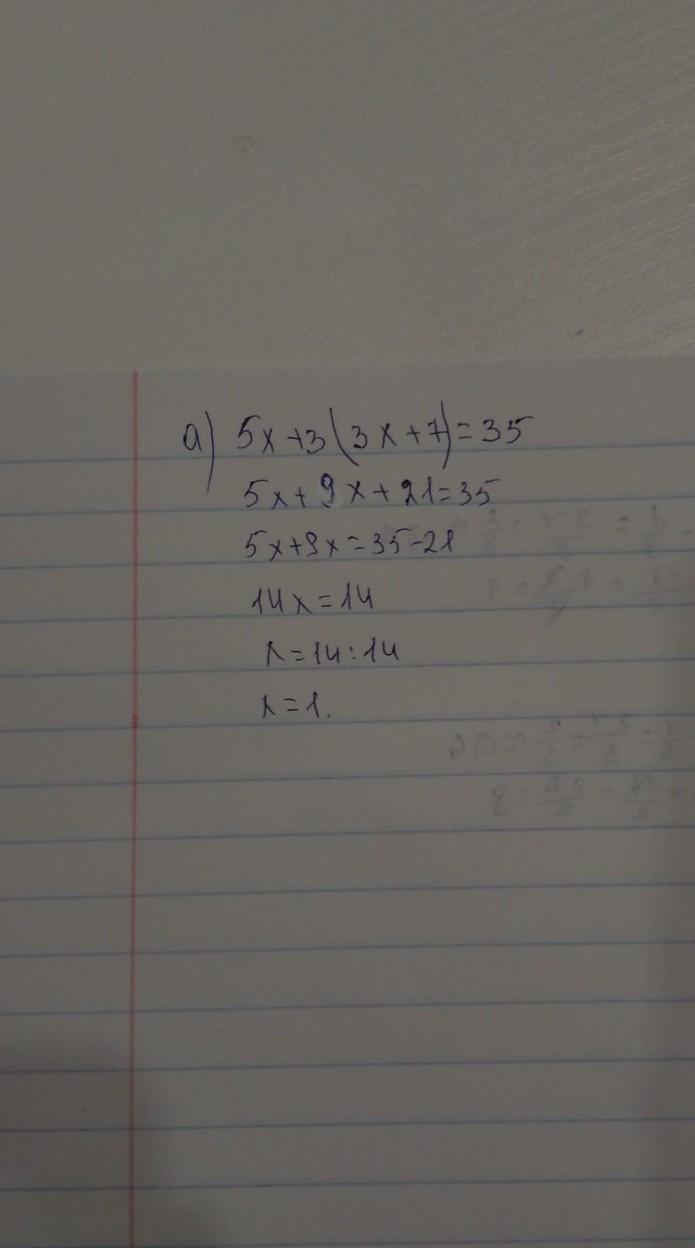 а) 5x+3(3x+7)=35
5x+9x+21=35
5x+9x=35-21
14x=14
x=14:14
x=1.